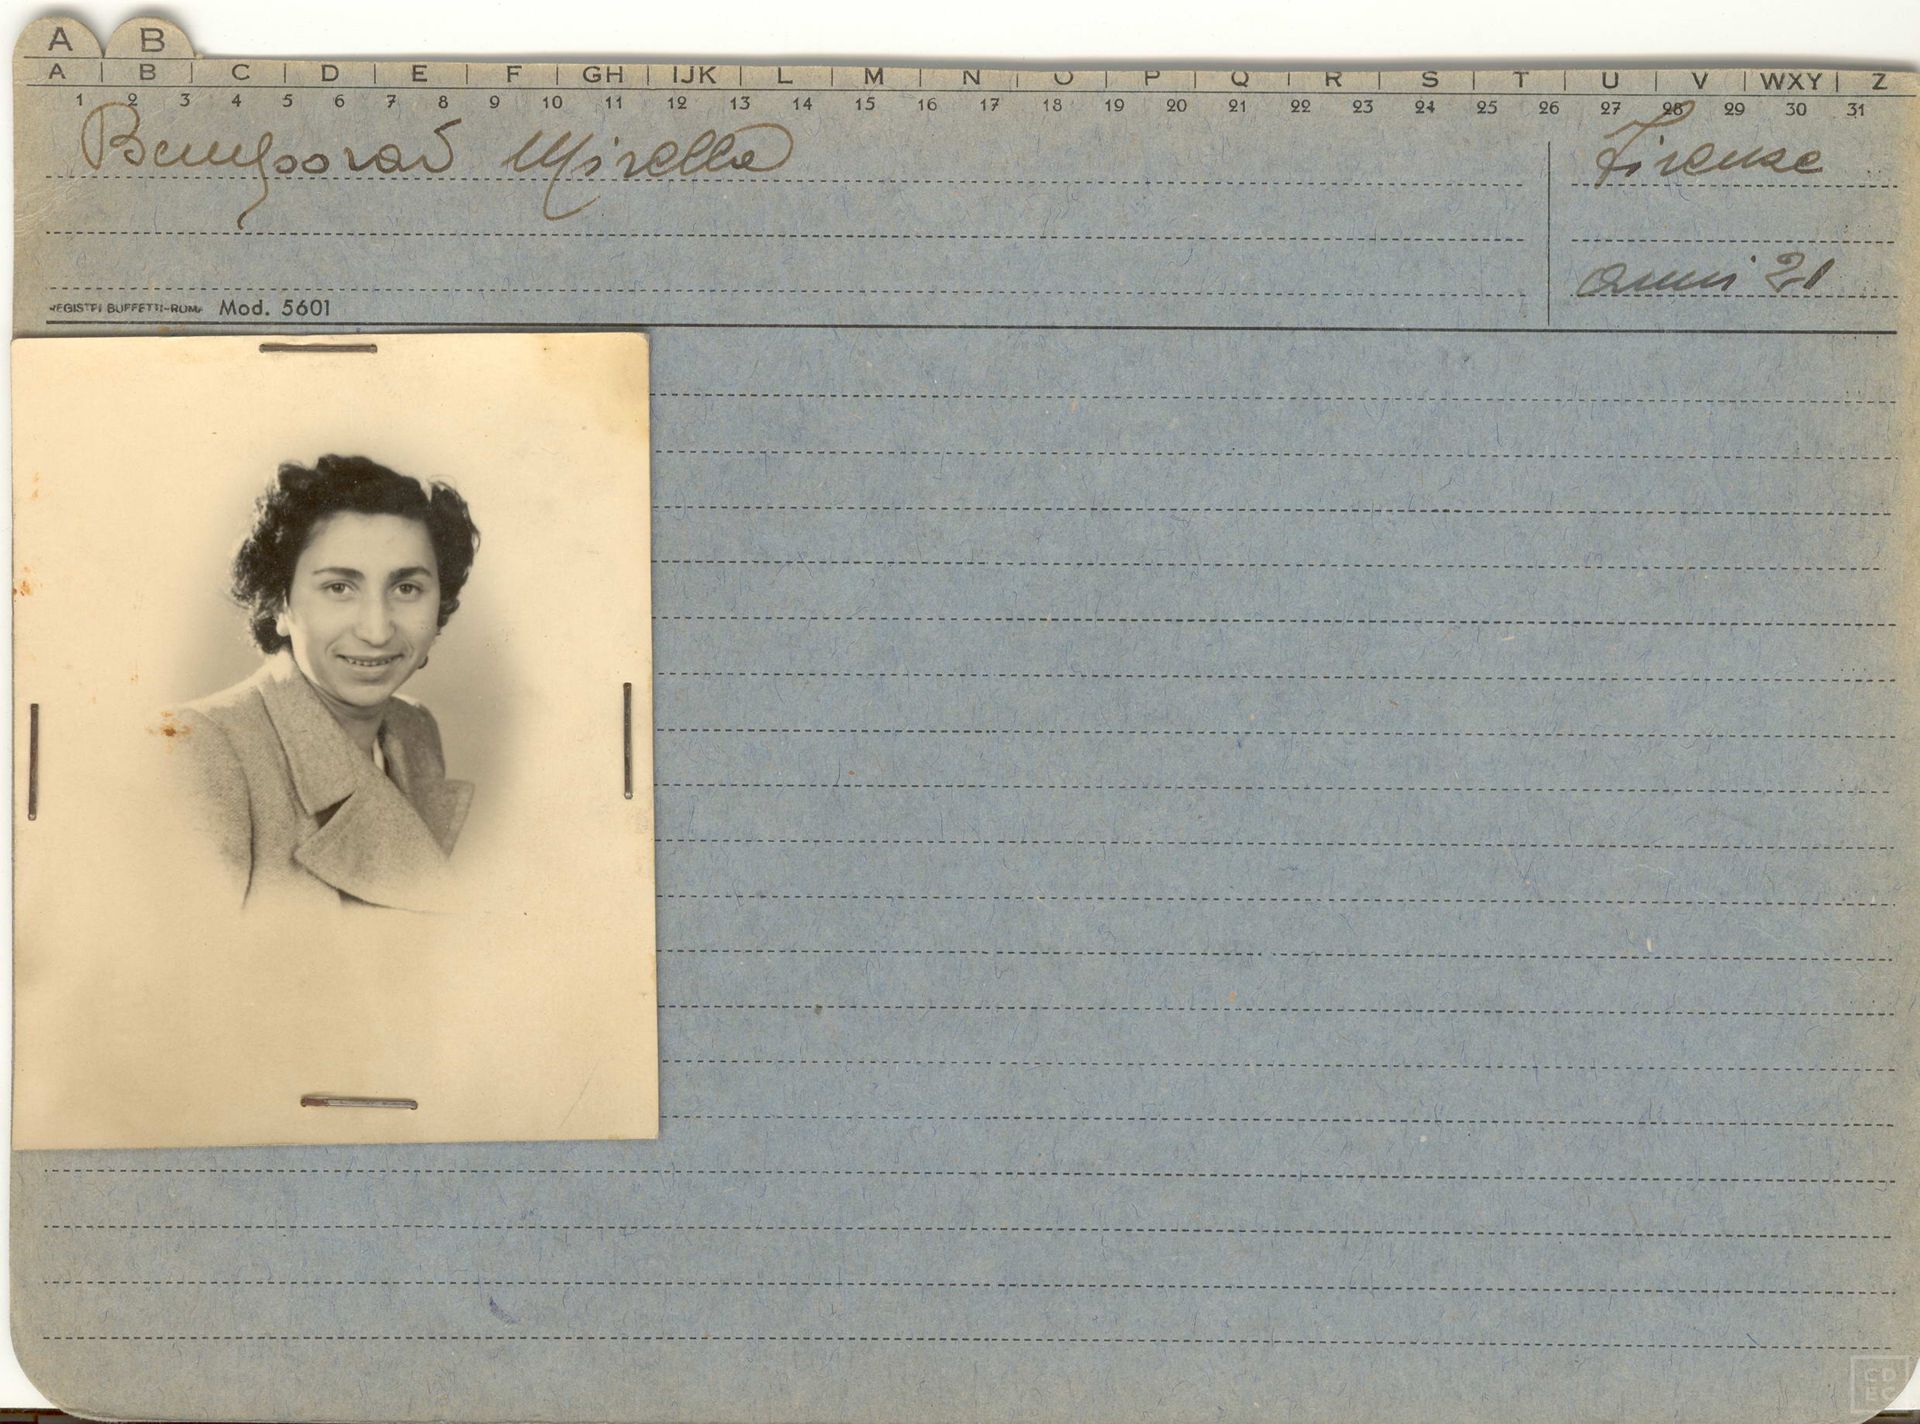 A B
A B C D E F GH IJK L M N O P Q R S T U V WXY Z
1 2 3 4 5 6 7 8 9 10 11 12 13 14 15 16 17 18 19 20 21 22 23 24 25 26 27 28 29 30 31
Bemporad Mirella
Firenze
anni 21
REGISTRI BUFFETTI-ROMA Mod. 5601
CD
EC